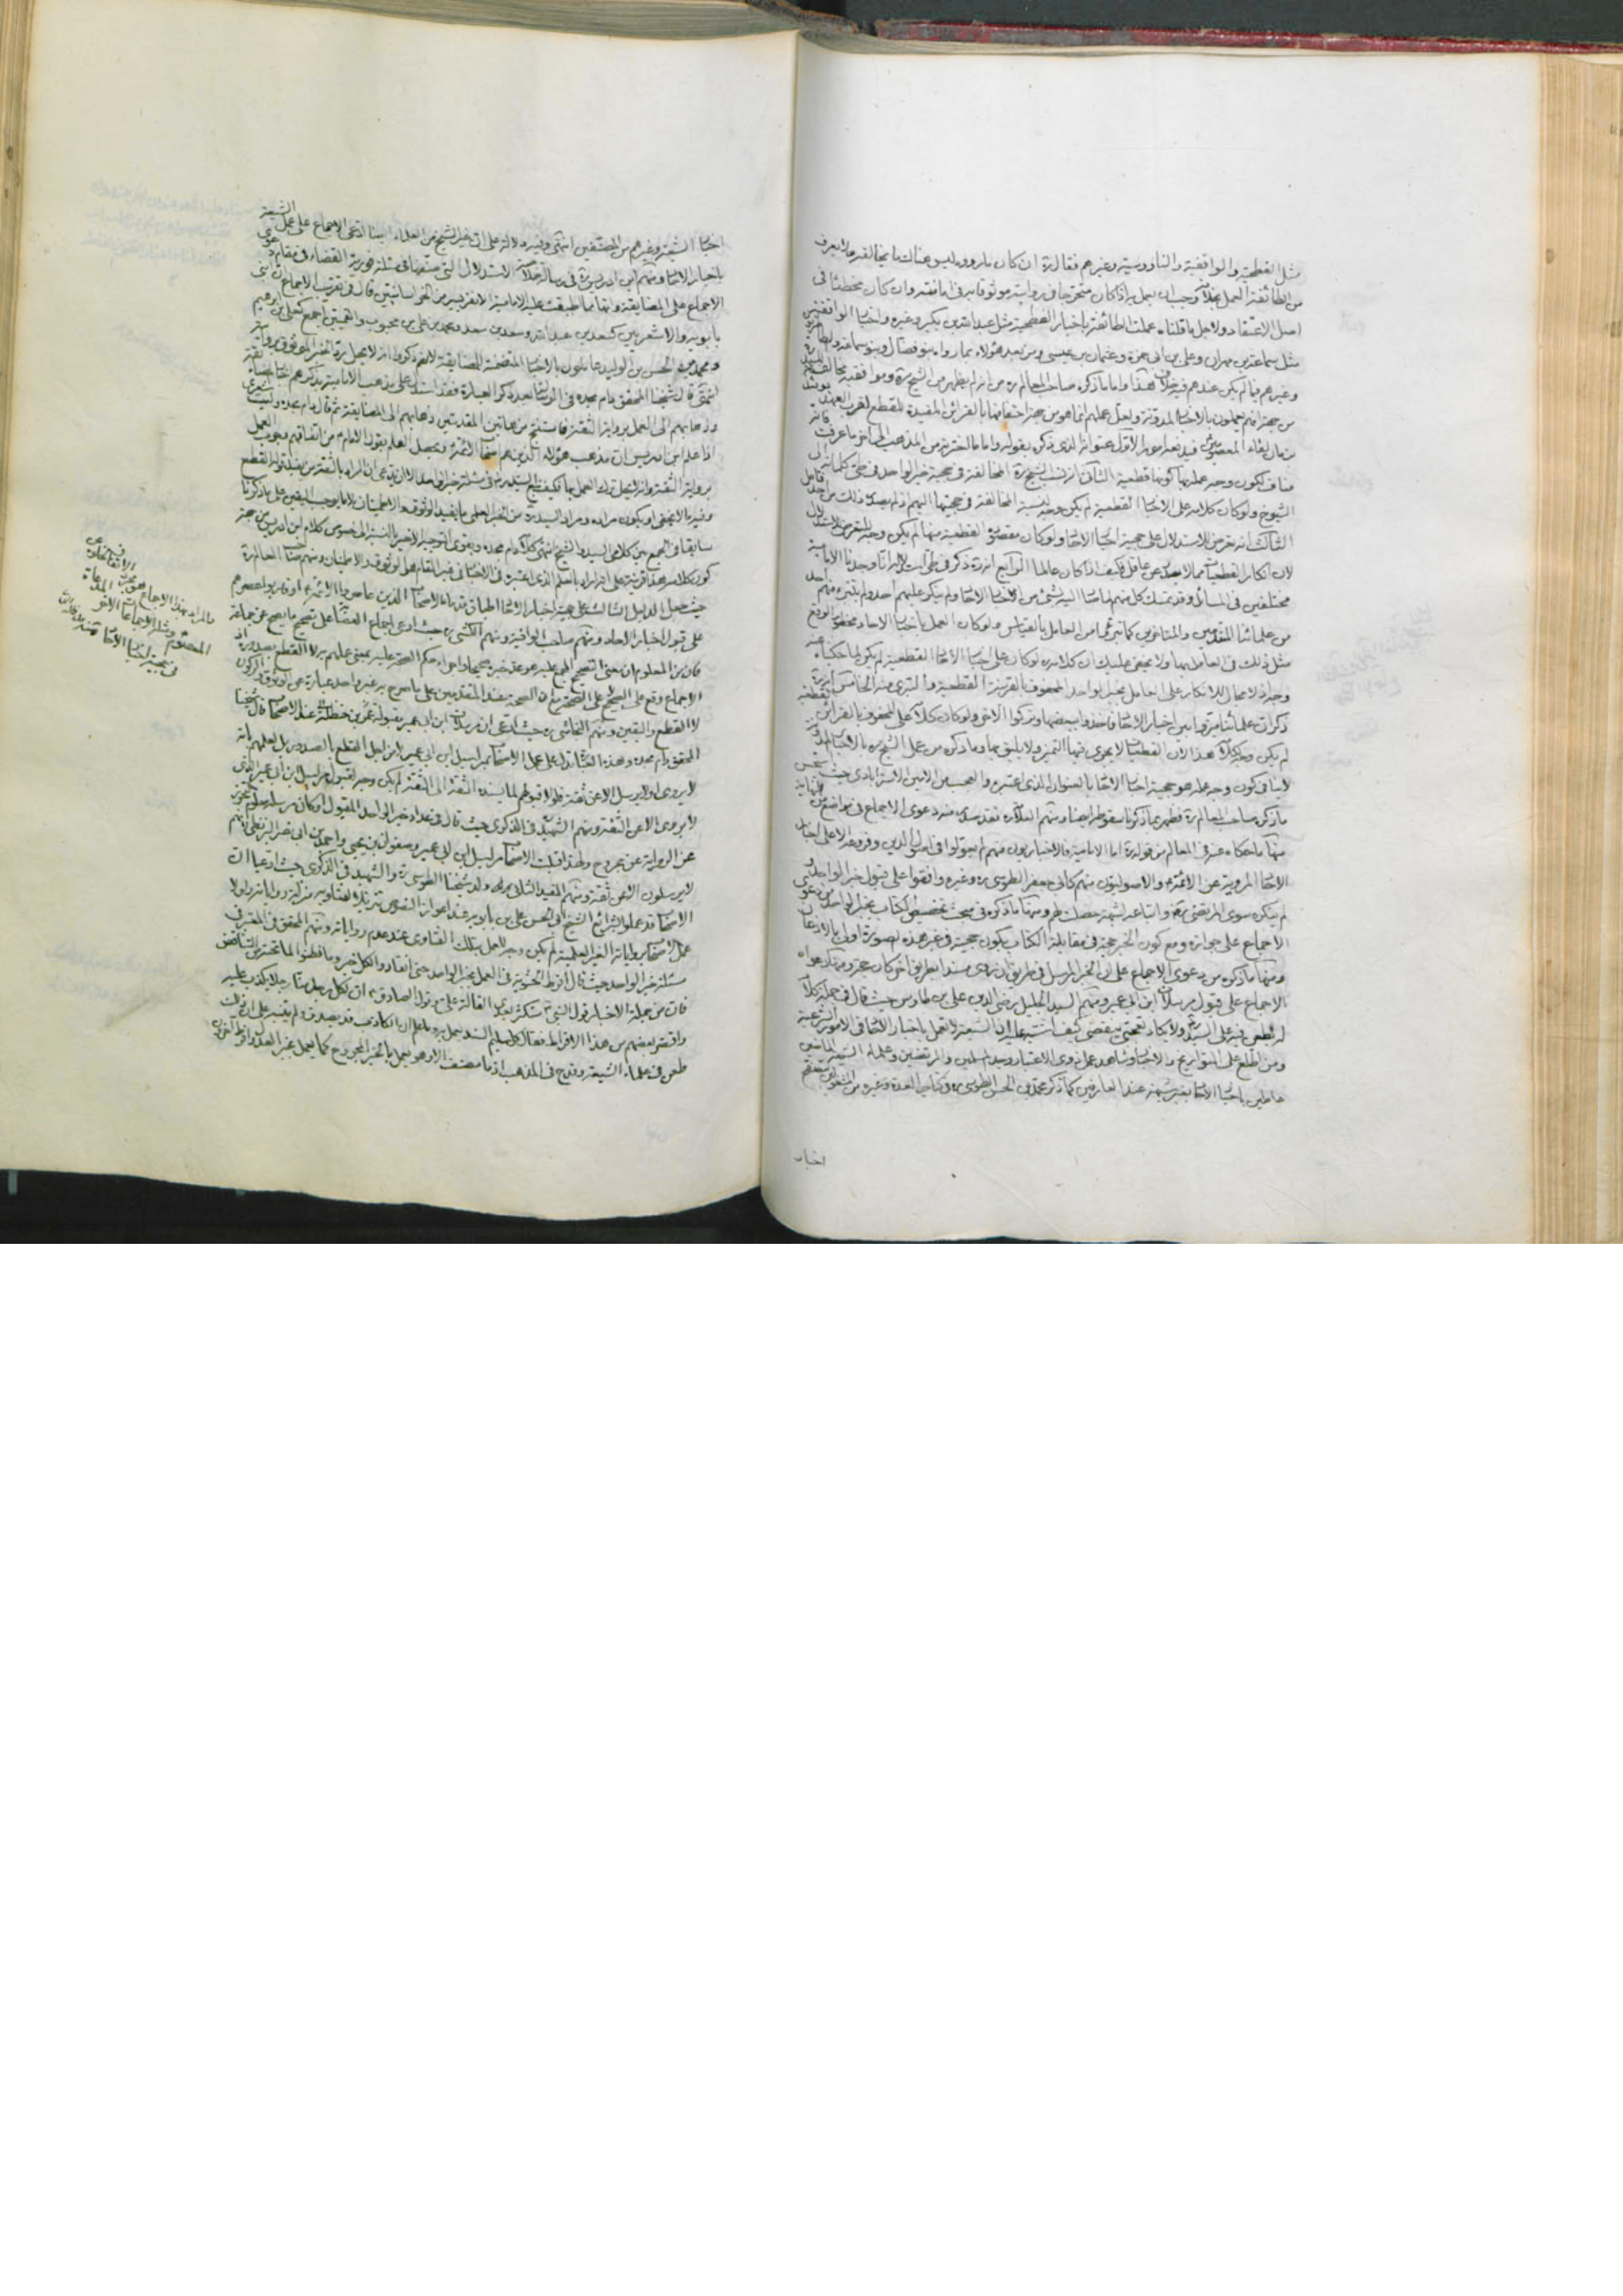 مثل الفطحية والواقفية والناووسية وغيرهم فقال ره ان كان ما رووه ليس هناك ما يخالفه ولا يعرف
من الطائفة العمل بخلافه وجب ان يعمل به اذا كان متحرجا في روايته موثوقا به في امانته وان كان مخطئا في
اصل الاعتقاد ولاجل ما قلناه عملت الطائفة باخبار الفطحية مثل عبد الله بن بكير وغيره واخبار الواقفية
مثل سماعة بن مهران وعلي بن ابي حمزة وعثمان بن عيسى ومن بعد هؤلاء بما رواه بنو فضال وبنو سماعة والطاطريون
وغيرهم فيما لم يكن عندهم فيه خلافه هذا واما ما ذكره صاحب المعالم ره من انه لم يظهر من الشيخ ره وموافقيه مخالفة السيد
من جهة انهم يعملون بالاخبار المدونة ولعل عملهم انما هو من جهة احتفافها بالقرائن المفيدة للقطع لقرب العهد
من زمان لقاء المعصومين فيدفعه امور الاول عنوانه الذي ذكره بقوله واما ما اخترته من المذهب الى اخر ما عرفت
مناف لكون وجه عملهم كونها قطعية الثاني انه نسب الشيخ ره المخالفة في حجية خبر الواحد في
الشيوخ ولو كان كلامه على الاخبار القطعية لم يكن وجه لنسبة المخالفة في حجيتها اليهم اذ لم يصدر ذلك من احد
الثالث انه تعرض للاستدلال على حجية اخبار الاحاد ولو كان مقصوده القطعية منها لم يكن وجه للتعرض للاستدلال
لان انكار القطعيات مما لا يصدر عن عاقل فكيف اذا كان عالما الرابع انه ره ذكر في
مختلفين في المسائل وقد تمسك كل منهم
من علمائنا المتقدمين والمتاخرين كما تبرؤا من العامل بالقياس ولو كان العمل باخبار الاحاد
مثل ذلك في العامل بهما ولا يخفى عليك ان كلامه ره لو كان على اخبار الاحاد القطعية لم يكن لما حكيناه عنه
وجه اذ لا مجال للانكار على العامل بخبر الواحد المحفوف بالقرينة القطعية والتبري منه الخامس انه ره
ذكر ان علمائنا ميزوا بين اخبار الاحاد فاخذوا ببعضها وتركوا الاخر ولو كان كلامه على المحفوف بالقرائن القطعية
لم يكن وجه لكلامه هذا لان القطعيات لا يجري فيها التميز ولا يليق بها وما ذكره من عمل الشيخ ره بالاخبار المدونة
لا ينافي كون وجه عمله هو حجية اخبار الاحاد بالعنوان الذي اعتبره والعجب من الامين الاسترابادي حيث
ما ذكره صاحب المعالم ره فظهر بما ذكرنا سقوطه ايضا ومنهم العلامة فقد صدر منه دعوى الاجماع في مواضع من النهاية
منها ما حكاه عنه في المعالم من قوله ره اما الامامية فالاخباريون منهم لم يعولوا في اصول الدين وفروعه الا على اخبار
الاحاد المروية عن الائمة والاصوليون منهم كابي جعفر الطوسي ره وغيره وافقوا على قبول خبر الواحد و
لم ينكره سوى المرتضى ره واتباعه لشبهة حصلت لهم ومنها ما ذكره في مبحث تخصيص الكتاب بخبر الواحد من دعوى
الاجماع على جوازه ومع كون الخبر حجة في مقابلة الكتاب يكون حجيته في غير هذه الصورة اولى بالاذعان
ومنها ما ذكره من دعوى الاجماع على ان الخبر المرسل في طريق ان روى مسندا بطريق اخر كان حجة ومنها دعواه
الاجماع على قبول مرسلات ابن ابي عمير ومنهم السيد الجليل رضي الدين علي بن طاوس حيث قال في جملة كلام
له يطعن فيه على السيد ره ولا يكاد تعجبي ينقضي كيف اشتبه عليه ان الشيعة لا تعمل باخبار الاحاد في الامور الشرعية
ومن اطلع على التواريخ والاخبار وشاهد عمل ذوي الاعتبار وجد المسلمين والمرتضى وعلماء الشيعة الماضين
عاملين باخبار الاحاد بغير شبهة عند العارفين كما ذكر محمد بن الحسن الطوسي ره في كتاب العدة وغيره من المشغولين بتصفح
اخبار
اخبار الشيعة وغيرهم من المصنفين انتهى وفيه دلالة على ان غير الشيخ من العلماء ايضا ادعى الاجماع على عمل الشيعة
باخبار الاحاد ومنهم ابن ادريس ره في رسالة خلاصة الاستدلال التي صنفها في مسئلة فورية القضاء في مقام دعوى
الاجماع على المضايقة وانها مما اطبقت عليه الامامية الا نفر يسير من الخراسانيين قال في تقريب الاجماع ان بني
بابويه والاشعريين كسعد بن عبد الله وسعد بن سعد ومحمد بن علي بن محبوب والقميين اجمع كعلي بن ابرهيم
ومحمد بن الحسن بن الوليد عاملون بالاخبار المتضمنة للمضايقة لانهم ذكروا انه لا يحل رد الخبر الموثوق برواته
انتهى قال شيخنا المحقق دام مجده في الرسائل بعد ذكر العبارة فقد استدل على مذهب الامامية بذكرهم لاخبار المضايقة
وذهابهم الى العمل برواية الثقة فاستنتج من هاتين المقدمتين ذهابهم الى المضايقة ثم قال دام مجده وليت شعري
اذا علم ابن ادريس ان مذهب هؤلاء الذين هم اصحاب الائمة ويحصل العلم بقول الامام من اتفاقهم وجوب العمل
برواية الثقة وانه لا يحل ترك العمل بها فكيف تبع السيد ره في مسئلة خبر الواحد الا ان يدعى ان المراد بالثقة من يفيد قوله القطع
وفيه ما لا يخفى او يكون مراده ومراد السيد ره من الخبر العلمي ما يفيد الوثوق والاطمينان لا ما يوجب اليقين على ما ذكرنا
سابقا في الجمع بين كلامي السيد والشيخ انتهى كلامه دام مجده ويقوى التوجيه الاخير بالنسبة الى خصوص كلام ابن ادريس من جهة
كون كلامه هذا قرينة على انه اراد بالعلم الذي اعتبره في الاخبار في غير المقام هو الوثوق والاطمينان ومنهم صاحب المعالم ره
حيث جعل الدليل الثالث على حجية اخبار الاحاد اطباق قدماء الاصحاب الذين عاصروا الائمة او قاربوا عصرهم
على قبول اخبار الاحاد ومنهم صاحب الوافية ومنهم الكشي ره حيث ادعى اجماع العصابة على تصحيح ما يصح عن جماعة
فان من المعلوم ان معنى التصحيح المجمع عليه هو عد خبره صحيحا واجراء حكم الصحة عليه بمعنى عملهم به لا القطع بصدوره اذ
الاجماع وقع على التصحيح لا على الصحة مع ان الصحة عند المتقدمين على ما صرح به غير واحد عبارة عن الوثوق والركون
لا القطع واليقين ومنهم النجاشي ره حيث ادعى ان مرسلات ابن ابي عمير مقبولة عند الاصحاب قال شيخنا
المحقق دام مجده وهذه العبارة تدل على عمل الاصحاب بمراسيل ابن ابي عمير لا من اجل القطع بالصدور بل لعلمهم بانه
لا يروي او لا يرسل الا عن ثقة فلولا قبولهم لما يسنده الثقة الى الثقة لم يكن وجه لقبول مراسيل ابن ابي عمير الذي
لا يروي الا عن الثقة ومنهم الشهيد في الذكرى حيث قال في عداد خبر الواحد المقبول او كان مرسله معلوم التحرز
عن الرواية عن مجروح ولهذا قبلت الاصحاب مراسيل ابن ابي عمير وصفوان بن يحيى واحمد بن ابي نصر البزنطي لانهم
لا يرسلون الا عن ثقة ومنهم المفيد الثاني ره ولد شيخنا الطوسي ره والشهيد في الذكرى حيث ادعيا ان
الاصحاب قد عملوا بشرائع الشيخ ابي الحسن علي بن بابويه عند اعواز النصوص تنزيلا لفتاويه منزلة رواياته ولولا
عمل الاصحاب برواياته الغير العلمية لم يكن وجه للعمل بتلك الفتاوى عند عدم رواياته ومنهم المحقق في المعتبر في
مسئلة خبر الواحد حيث قال افرط الحشوية في العمل بخبر الواحد حتى انقادوا لكل خبر وما فطنوا لما تحته من التناقض
فان من جملة الاخبار قول النبي ستكثر بعدي القالة علي وقول الصادق ان لكل رجل منا رجلا يكذب عليه
واقتصر بعضهم من هذا الافراط فقال كل سليم السند يعمل به وما علم ان الكاذب قد يصدق ولم يتنبه على ان ذلك
طعن في علماء الشيعة وقدح في المذهب اذ ما مصنف الا وهو يعمل بالخبر المجروح كما يعمل بخبر العدل وافرط اخرون